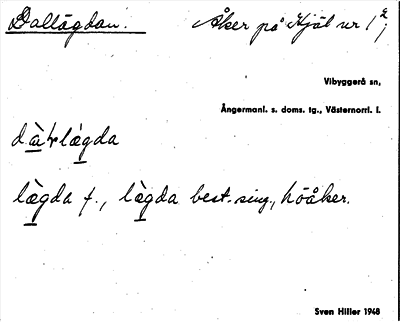 Dallägdan. Åker på Hjäl nr 1²;
Vibyggerå sn,
Ångermanl. s. doms. tg., Västernorrl. l.
dàlrlǻgda
lægda f., lægda best. sing., höåker.
Sven Hiller 1948